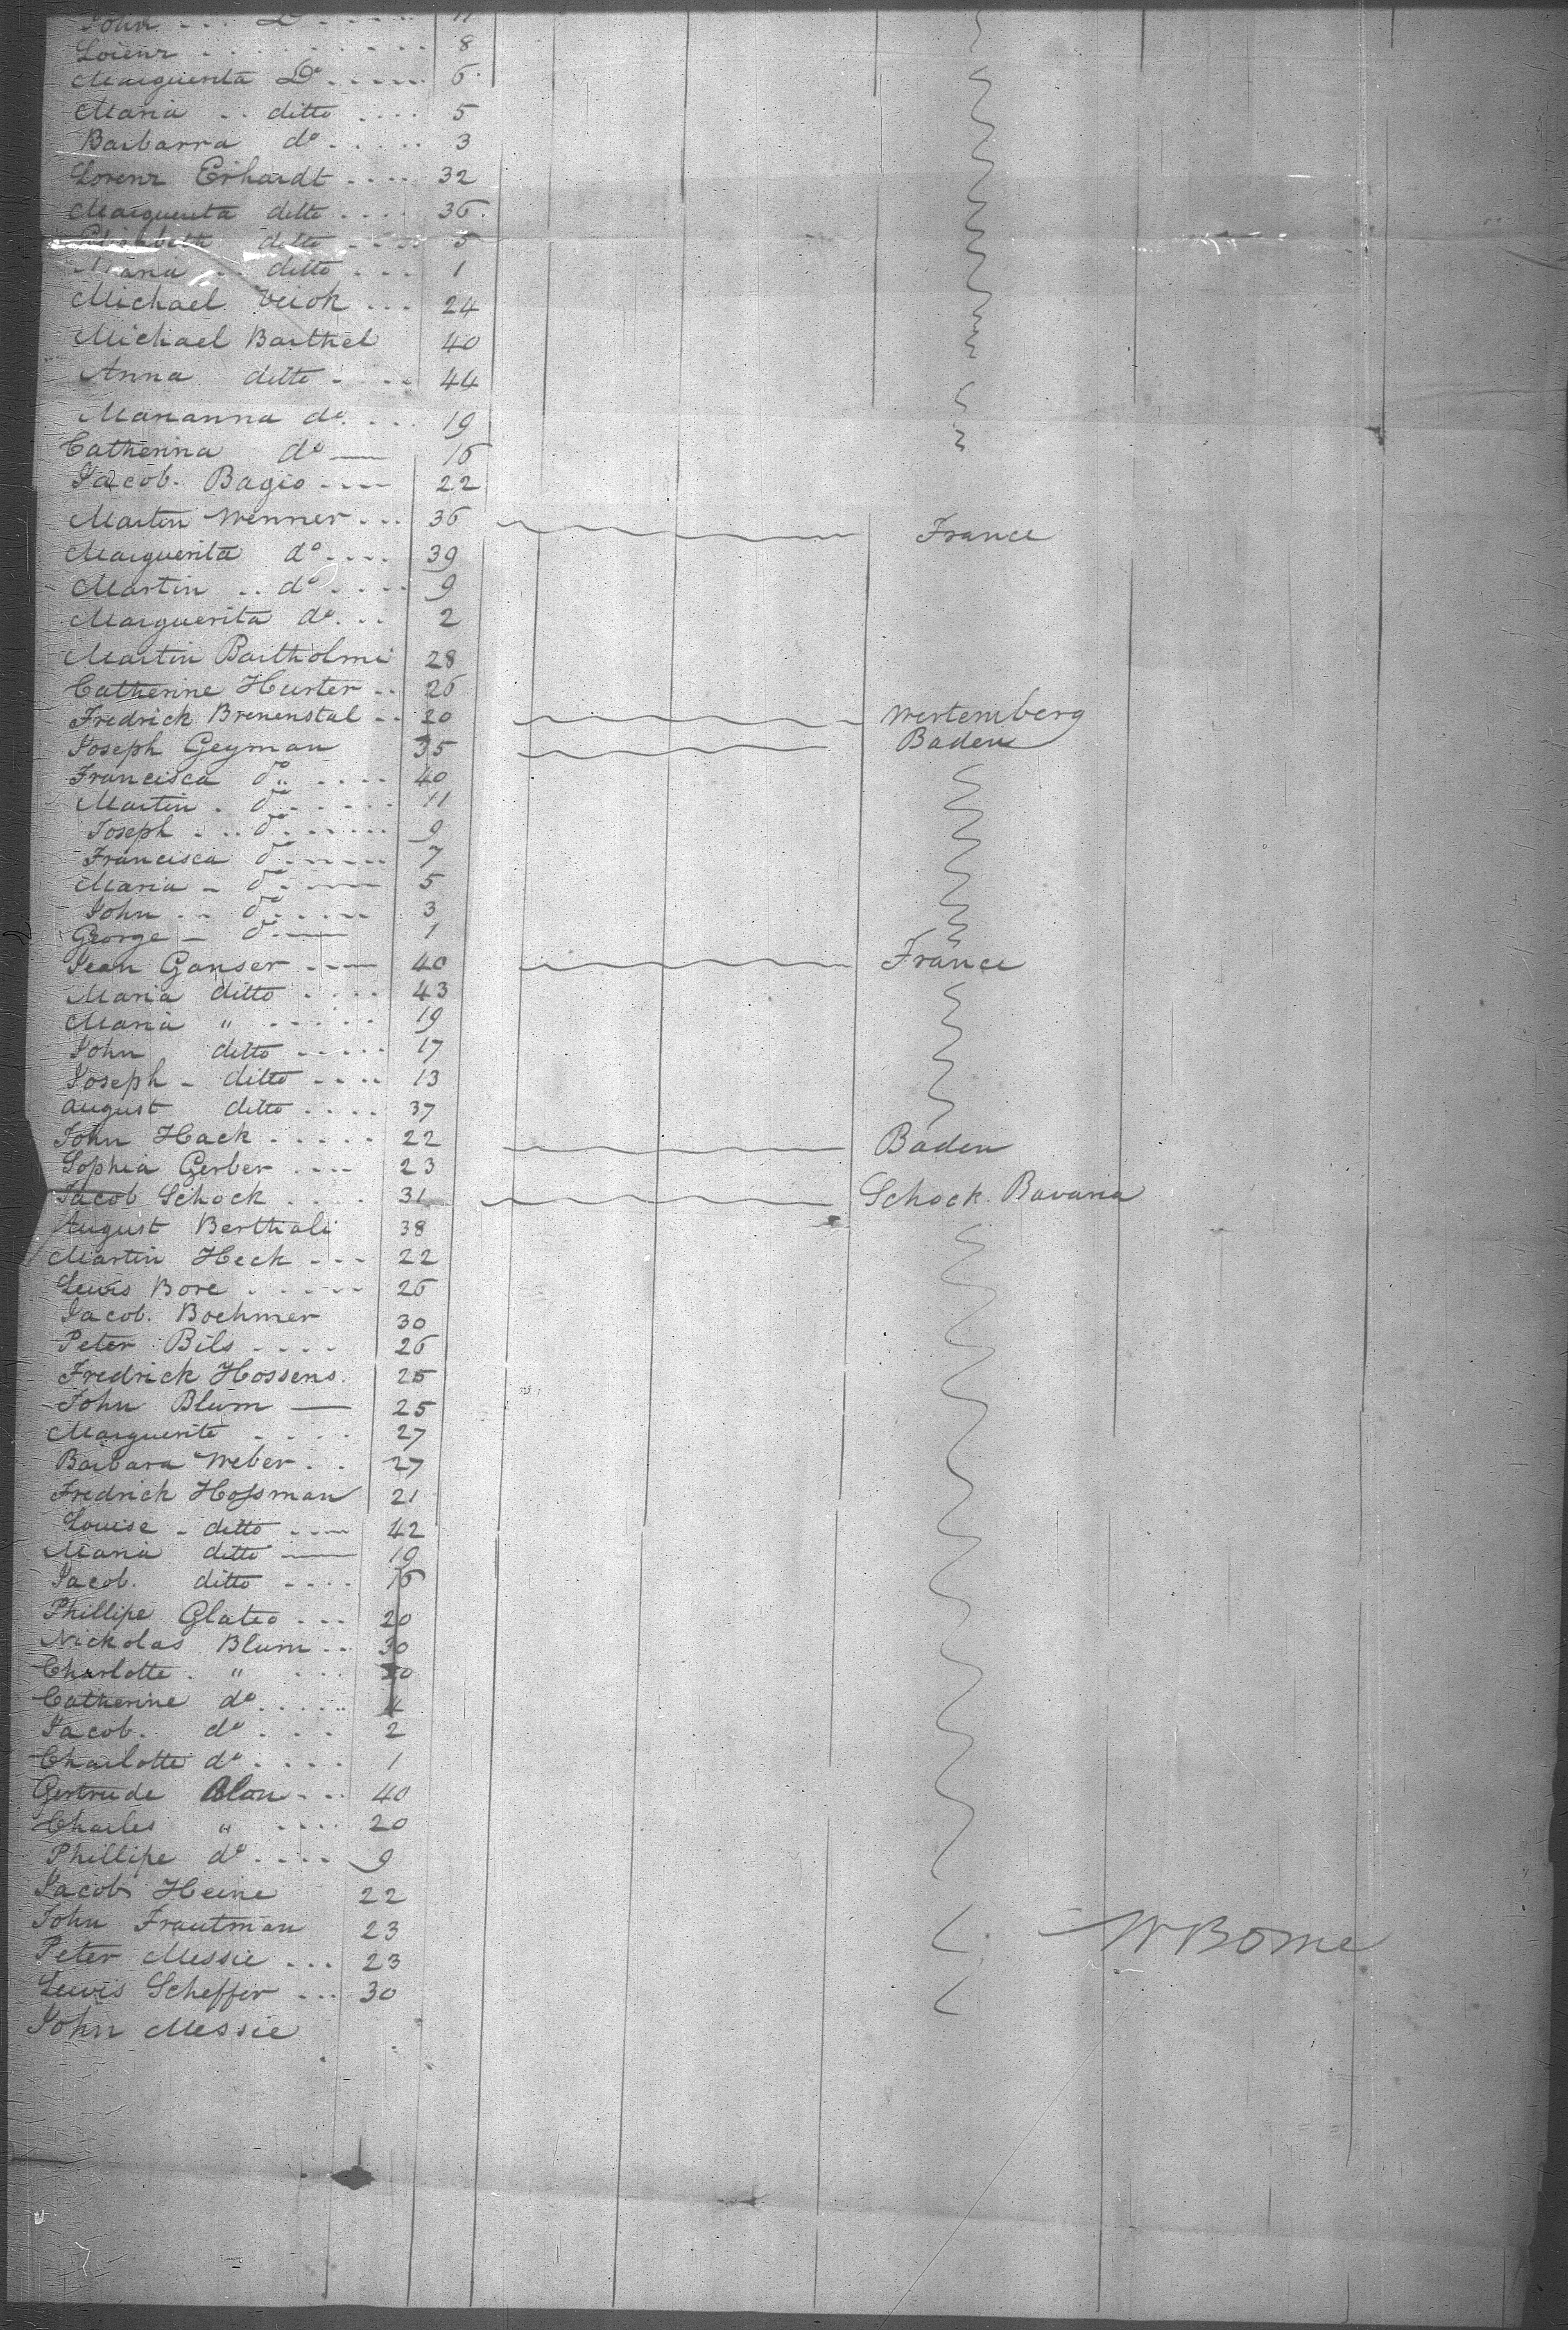 John . . . D° . . . . 11
Lorenz . . . . . . . . . 8
Marguerita D° . . . . . 6
Maria . . ditto . . . . 5
Barbarra d° . . . . . 3
Lorenz Erhardt . . . . 32
Marguerita ditto . . . . 36
Elisabeth ditto . . . . 5
Maria . . ditto . . . 1
Michael Veiok . . . 24
Michael Barthel 40
Anna ditto . . . . 44
Marianna d° . . . . 19
Catherina d° — 16
Jacob. Bagio . . . . 22
Martin Wenner . . . 36 France
Marguerita d° . . . . 39
Martin . . d° . . . . 9
Marguerita d° . . . 2
Martin Bartholmi 28
Catherine Hurter . . 26
Fredrick Brenenstal . . 20 Wertemberg
Joseph Geyman 35 Baden
Francisca d° . . . . . 40
Martin . d° . . . . . 11
Joseph . . . d° . . . . . 9
Francisca d° . . . . . 7
Maria - d° . . . . 5
John . . . d° . . . . . 3
George - d° . . . 1
Jean Ganser . . . . 40 France
Maria ditto . . . . 43
Maria " . . . . . 19
John ditto . . . . . 17
Joseph - ditto . . . . 13
August ditto . . . . 37
John Hack . . . . . 22 Baden
Sophia Gerber . . . . 23
Jacob Schock . . . . 31 Schock. Bavaria
August Berthali 38
Martin Heck . . . 22
Lewis Bore . . . . . 26
Jacob. Boehmer 30
Peter Bils . . . . 26
Fredrick Hossens. 25
John Blum — 25
Marguerite . . . . 27
Barbara Weber . . 27
Fredrick Hossman 21
Louise - ditto . . . . 42
Maria ditto — 19
Jacob. ditto . . . . 16
Phillipe Glateo . . . 20
Nickolas Blum . . 30
Charlotte . " . . . 30
Catherine d° . . . . . 4
Jacob. d° . . . . 2
Charlotte d° . . . . 1
Gertrude Blau . . . 40
Charles " . . . . 20
Phillipe d° . . . . 9
Jacob Heine 22
John Trautman 23 W Bome
Peter Messie . . . 23
Lewis Scheffer . . . 30
John Messie